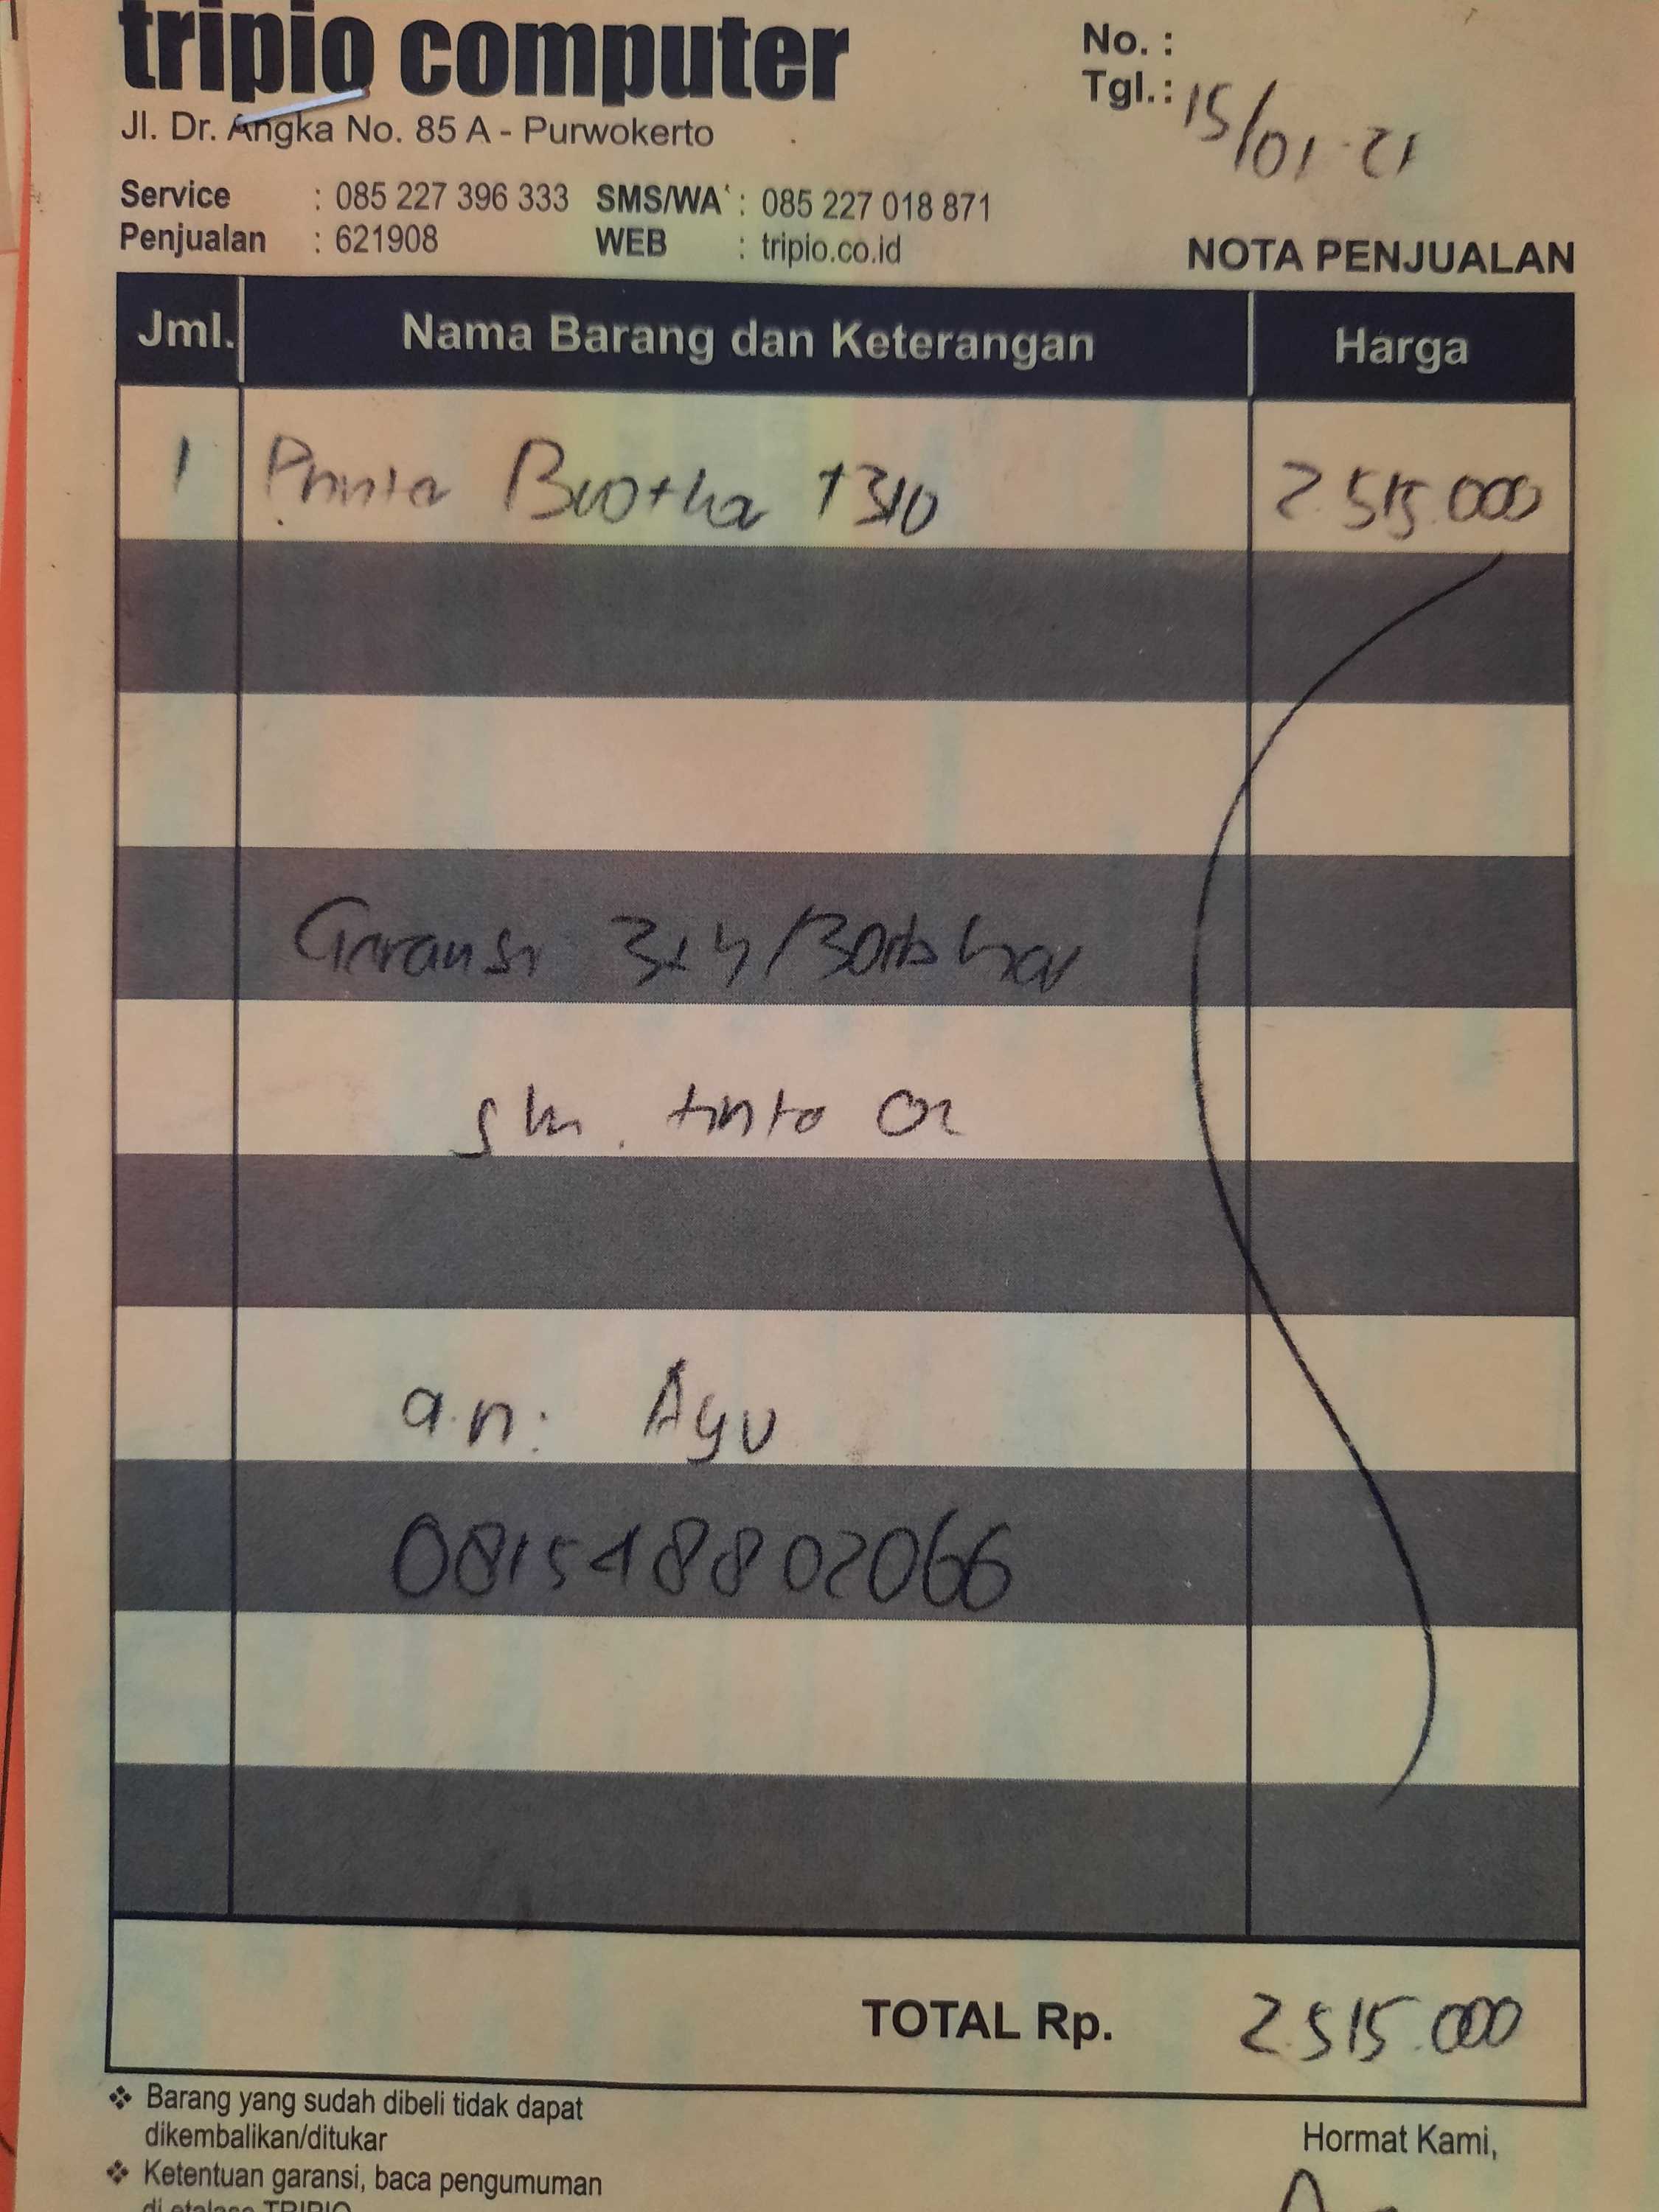 tripio computer
No. :
Tgl.: 15/01-21
Jl. Dr. Angka No. 85 A - Purwokerto
Service : 085 227 396 333 SMS/WA : 085 227 018 871
Penjualan : 621908 WEB : tripio.co.id
NOTA PENJUALAN
Jml. Nama Barang dan Keterangan Harga
1 Printer Brother T310 2.515.000
Garansi 3th/30rb
tinta
a.n: Ayu
081548802066
TOTAL Rp. 2.515.000
❖ Barang yang sudah dibeli tidak dapat
dikembalikan/ditukar
Hormat Kami,
❖ Ketentuan garansi, baca pengumuman
di etalase TRIPIO